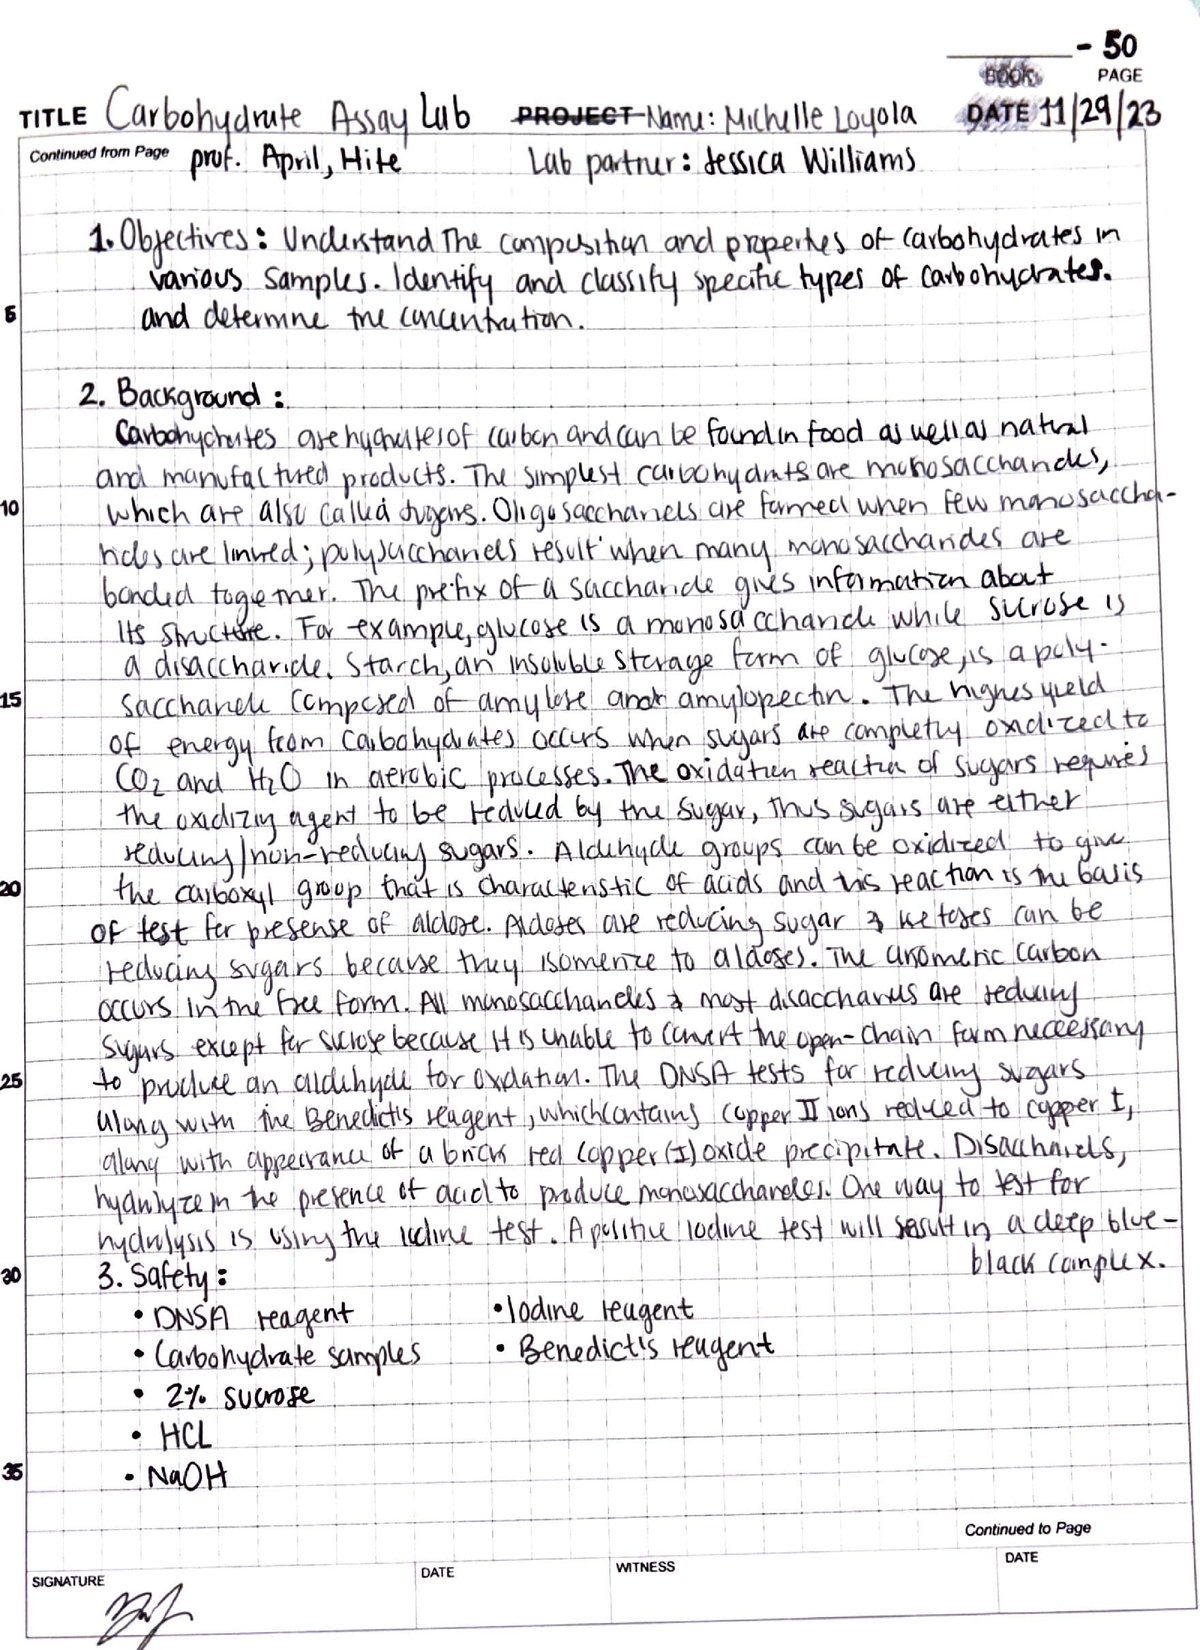 - 50
BOOK PAGE
TITLE Carbohydrate Assay Lab PROJECT Name: Michelle Loyola DATE 11/29/23
Continued from Page prof. April, Hite Lab partner: Jessica Williams
1. Objectives: Understand The composition and properties of carbohydrates in
various samples. Identify and classify specific types of carbohydrates.
5 and determine the concentration.
2. Background:
Carbohydrates are hydrates of carbon and can be found in food as well as natural
and manufactured products. The simplest carbohydrates are monosaccharides,
10 which are also called sugars. Oligosaccharids are formed when few monosaccha-
rides are linked; polysaccharids result when many monosaccharides are
bonded together. The prefix of a saccharide gives information about
its structure. For example, glucose is a monosaccharide while sucrose is
a disaccharide. Starch, an insoluble storage form of glucose, is a poly-
15 saccharide composed of amylose and amylopectin. The highes yield
of energy from carbohydrates occurs when sugars are completly oxidized to
CO2 and H2O in aerobic processes. The oxidation reaction of sugars requires
the oxidizing agent to be reduced by the sugar, thus sugars are either
reducing/non-reducing sugars. Aldehyde groups can be oxidized to give
20 the carboxyl group that is characteristic of acids and this reaction is the basis
of test for presense of aldose. Aldoses are reducing sugar & ketoses can be
reducing sugars because they isomerize to aldoses. The anomeric carbon
occurs in the free form. All monosaccharides & most disaccharides are reducing
sugars except for sucrose because it is unable to convert the open-chain form neccessary
25 to produce an aldehyde for oxidation. The DNSA tests for reducing sugars
along with the Benedict's reagent, which contains copper II ions reduced to copper I,
along with appearance of a brick red copper(I) oxide precipitate. Disaccharids,
hydrolyze in the presence of acid to produce monosaccharides. One way to test for
hydrolysis is using the iodine test. A positive iodine test will result in a deep blue-
black complex.
30 3. Safety:
• DNSA reagent • Iodine reagent
• Carbohydrate samples • Benedict's reagent
• 2% sucrose
• HCL
35 • NaOH
Continued to Page
SIGNATURE DATE WITNESS DATE